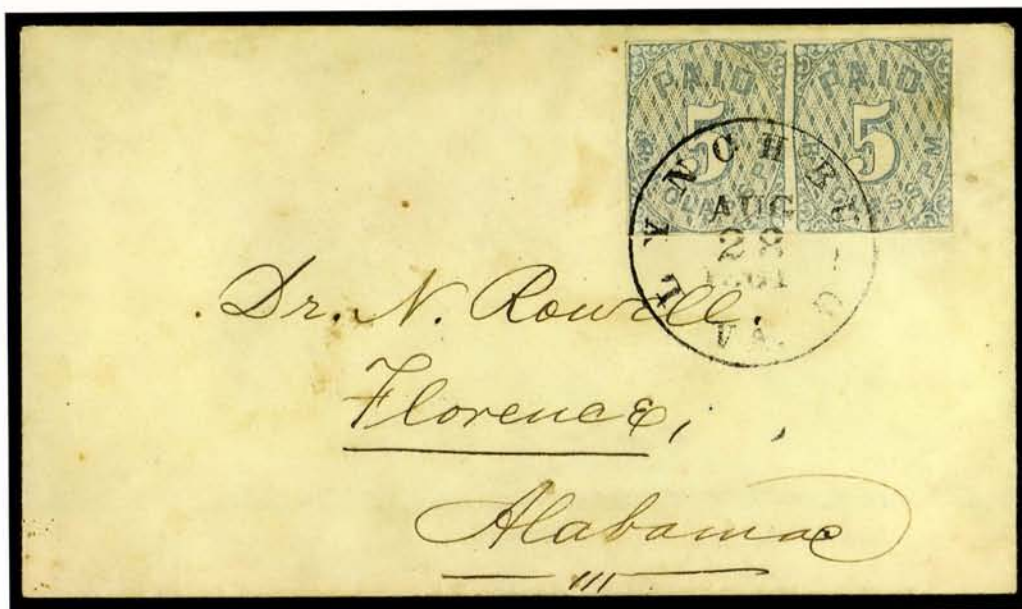 PAID PAID
5 5
LYNCHBURG
AUG
28
1861
VA.
Dr. N. Rowell,
Florence,
Alabama